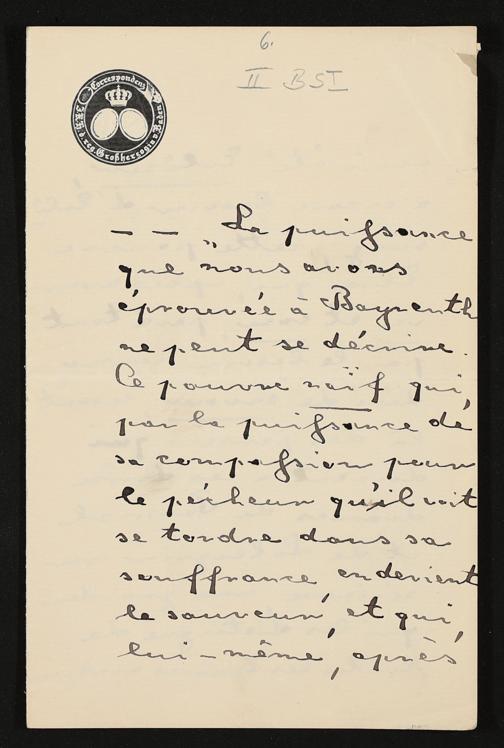 6.
II BSI
Correspondenz
Großherzogin
— — „La puissance
que nous avons
éprouvée à Bayreuth
ne peut se décrire.
Ce pauvre naïf qui,
par la puissance de
sa compassion pour
le pécheur qu'il voit
se tordre dans sa
souffrance, en devient
le sauveur, et qui,
lui-même, après